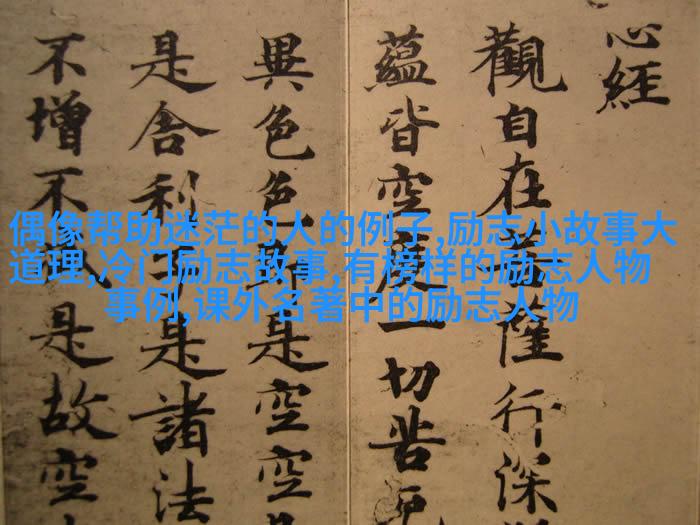 心經
觀自在菩薩行深
蘊皆空度一切苦厄
異色色即是空空
是舍利子是諸法
不增不減是故空
偶像帮助迷茫的人的例子,励志小故事大
道理,冷门励志故事,有榜样的励志人物
事例,课外名著中的励志人物